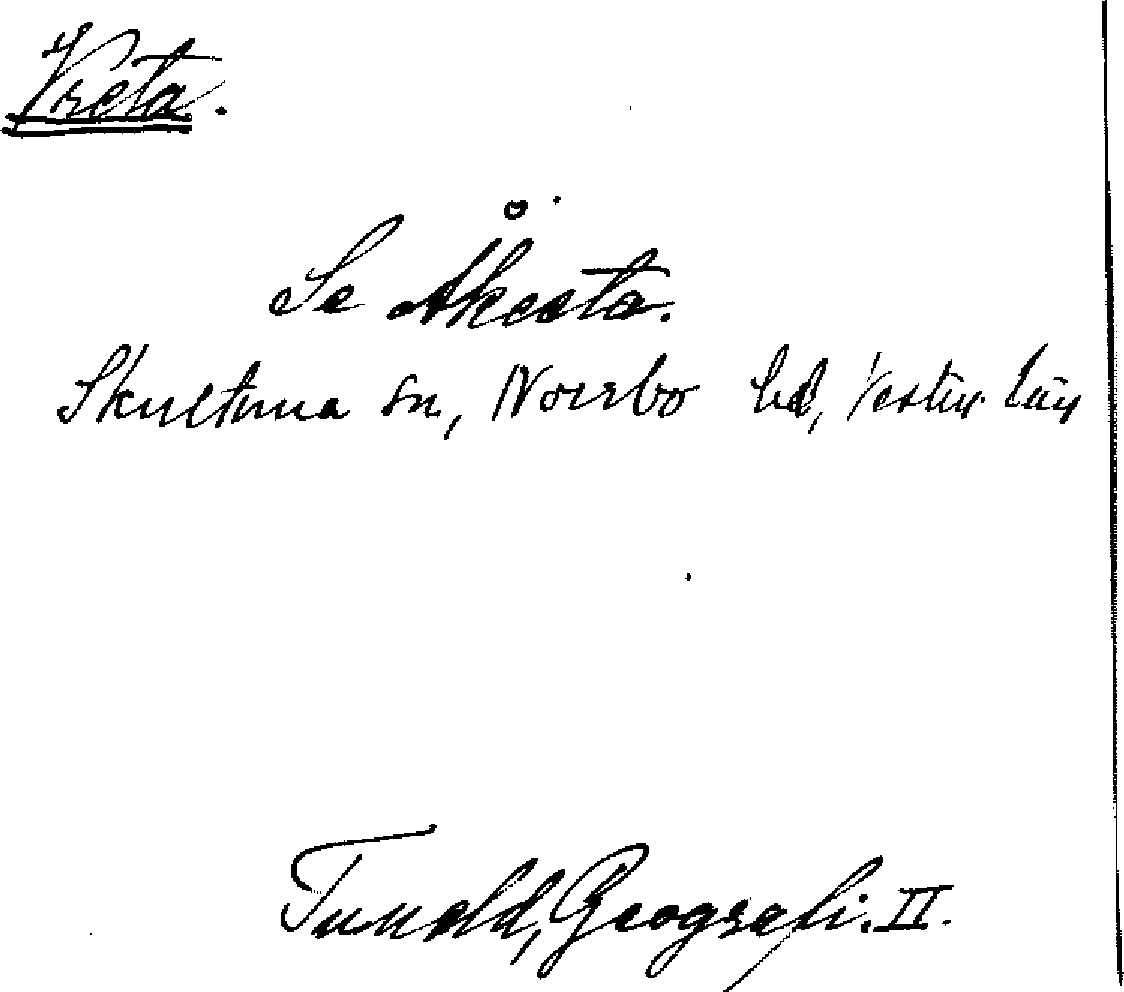 Vreta.
Se Åkesta.
Skultuna sn, Norrbo hd, Vestm. län
Tuneld, Geografi. II.